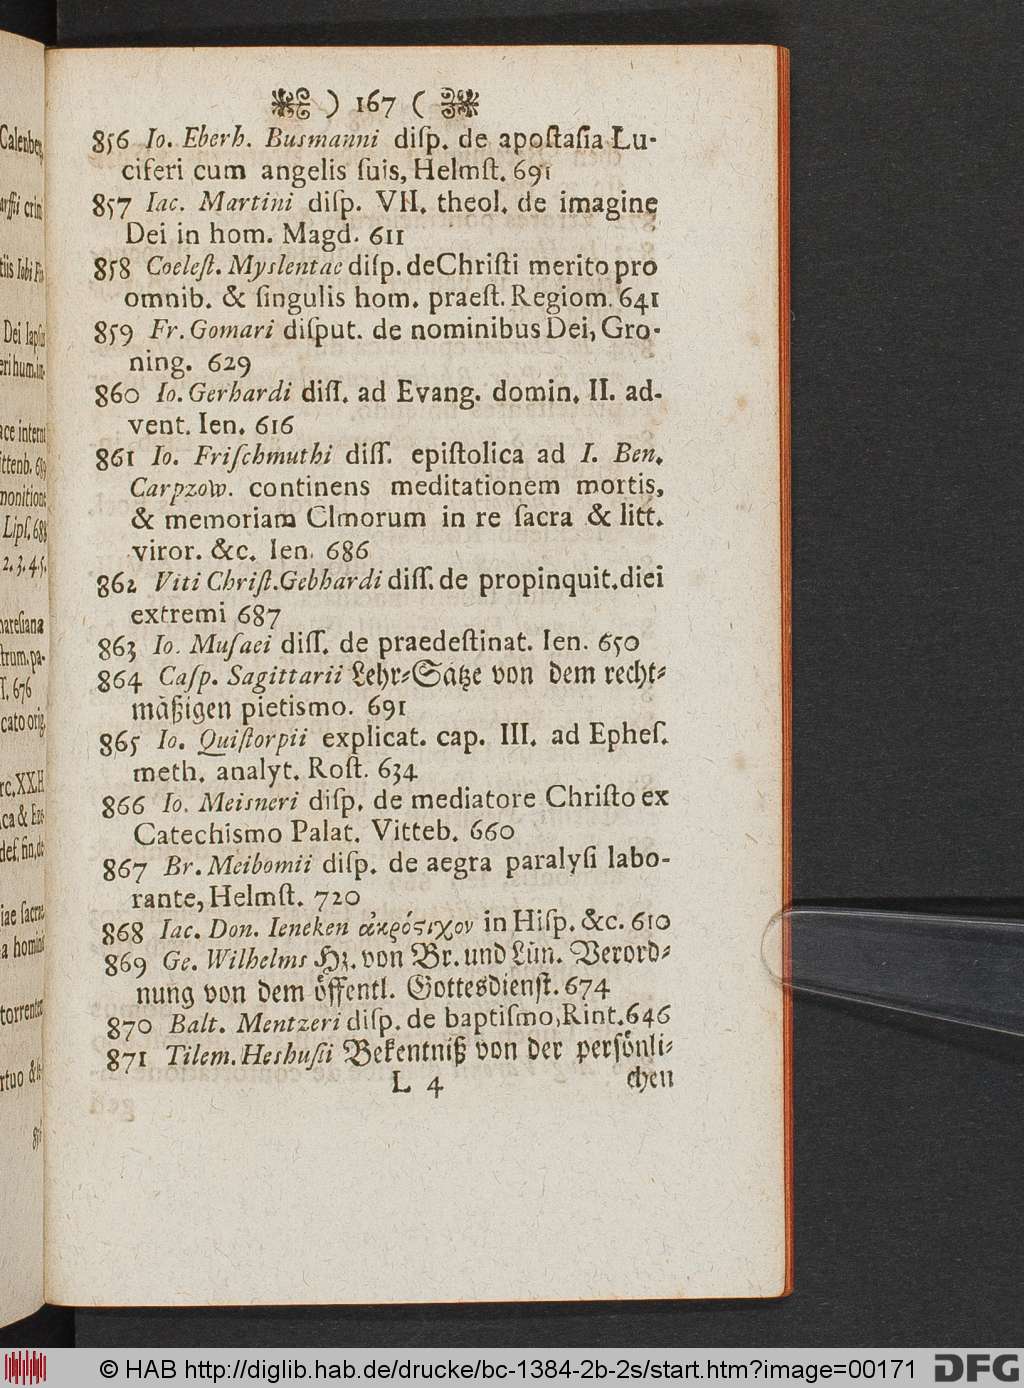 ) 167 (
856 Io. Eberh. Busmanni diſp. de apoſtaſia Lu-
ciferi cum angelis ſuis, Helmſt. 691
857 Iac. Martini diſp. VII. theol. de imagine
Dei in hom. Magd. 611
858 Coeleſt. Myslentae diſp. de Chriſti merito pro
omnib. & ſingulis hom. praeſt. Regiom. 641
859 Fr. Gomari diſput. de nominibus Dei, Gro-
ning. 629
860 Io. Gerhardi diſſ. ad Evang. domin. II. ad-
vent. Ien. 616
861 Io. Friſchmuthi diſſ. epiſtolica ad I. Ben.
Carpzow. continens meditationem mortis,
& memoriam Clmorum in re ſacra & litt.
viror. &c. Ien. 686
862 Viti Chriſt. Gebhardi diſſ. de propinquit. diei
extremi 687
863 Io. Muſaei diſſ. de praedeſtinat. Ien. 650
864 Caſp. Sagittarii Lehr-Sätze von dem recht-
mäßigen pietismo. 691
865 Io. Quiſtorpii explicat. cap. III. ad Epheſ.
meth. analyt. Roſt. 634
866 Io. Meisneri diſp. de mediatore Chriſto ex
Catechismo Palat. Vitteb. 660
867 Br. Meibomii diſp. de aegra paralyſi labo-
rante, Helmſt. 720
868 Iac. Don. Ieneken ἀκρόϛιχον in Hiſp. &c. 610
869 Ge. Wilhelms Hz. von Br. und Lün. Verord-
nung von dem öffentl. Gottesdienſt. 674
870 Balt. Mentzeri diſp. de baptiſmo, Rint. 646
871 Tilem. Heshuſii Bekentniß von der perſönli-
L 4 chen
Calenber
crim
tiis Iobi
Dei
ri hum.
ace interni
ittenb.
monitione
Lipſ. 688
2. 3. 4. 5.
trum. pa-
ſ. 676
cato orig.
rc. XXII
ca &
def. fin. de
iae ſacrae
a hominis
torrente
rtuo &
© HAB http://diglib.hab.de/drucke/bc-1384-2b-2s/start.htm?image=00171 DFG